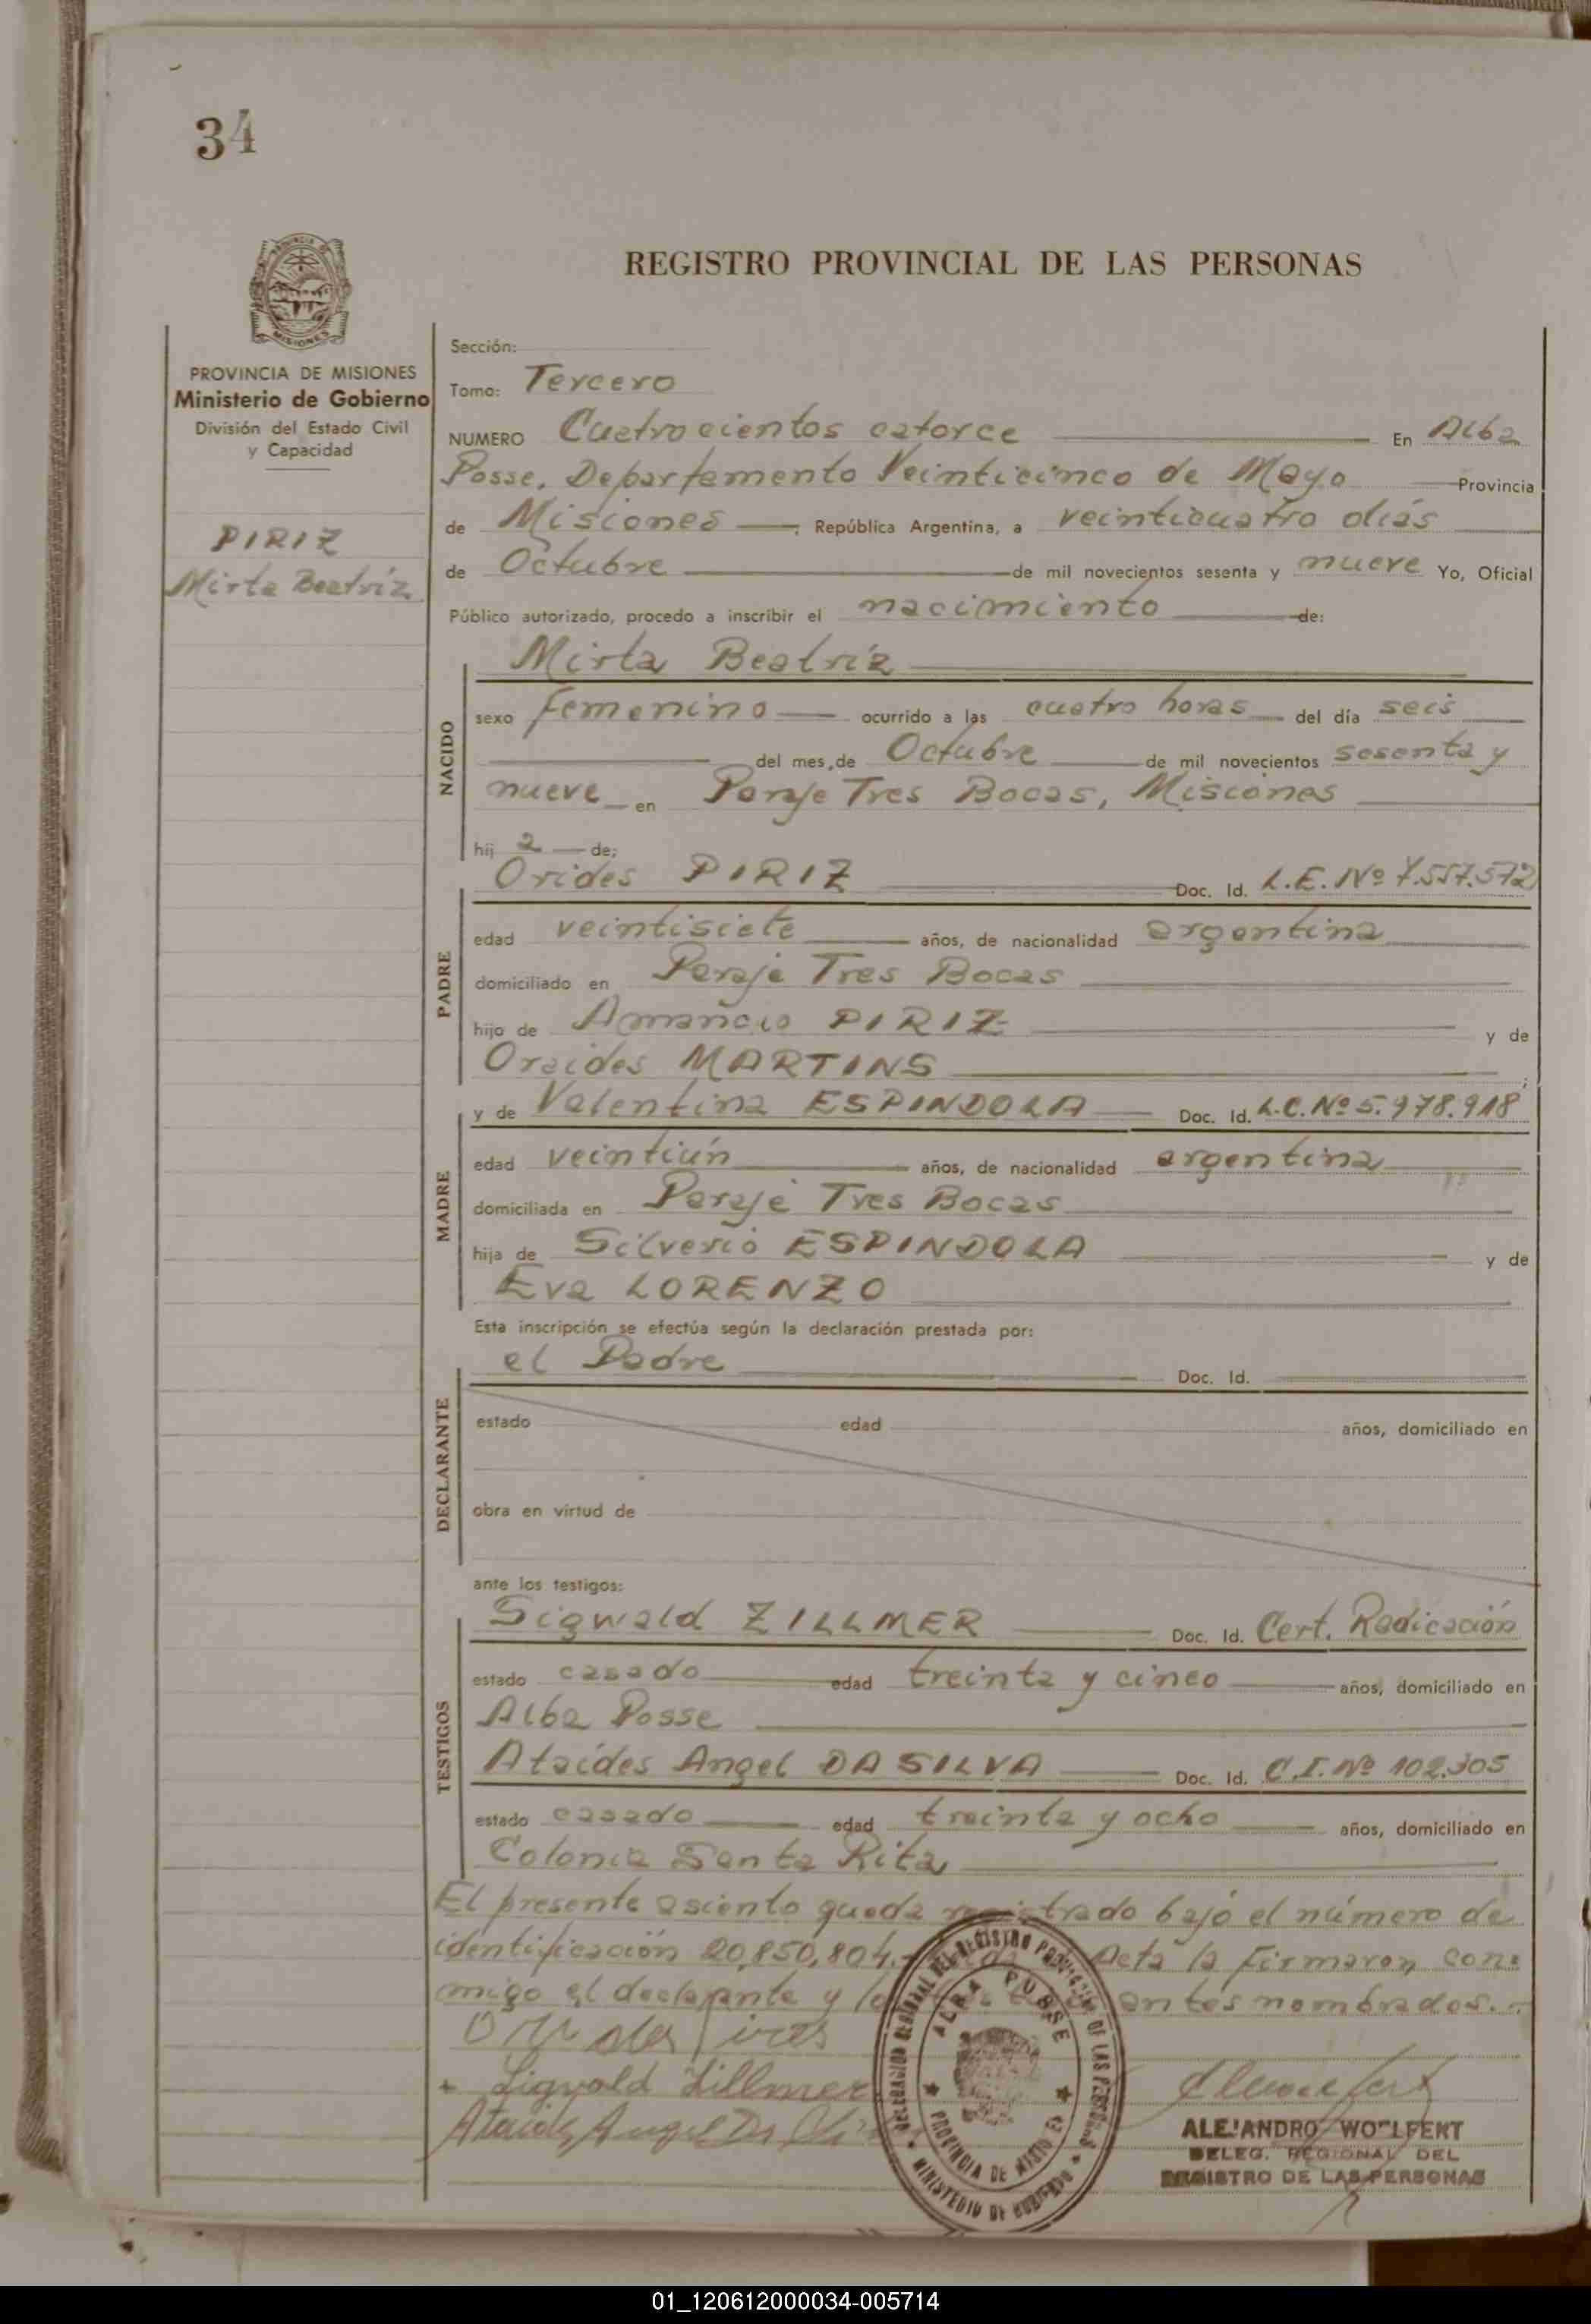 34
REGISTRO PROVINCIAL DE LAS PERSONAS
PROVINCIA DE
MISIONES
PROVINCIA DE MISIONES
Ministerio de Gobierno
División del Estado Civil
y Capacidad
PIRIZ
Mirta Beatriz
Sección:
Tomo: Tercero
NUMERO Cuatrocientos catorce En Alba
Posse, Departamento Veinticinco de Mayo Provincia
de Misiones, República Argentina, a veinticuatro días
de Octubre de mil novecientos sesenta y nueve Yo, Oficial
Público autorizado, procedo a inscribir el nacimiento de:
Mirta Beatriz
NACIDO
sexo femenino ocurrido a las cuatro horas del día seis
del mes de Octubre de mil novecientos sesenta y
nueve en Paraje Tres Bocas, Misiones
hij a de:
Orides PIRIZ Doc. Id. L.E. Nº 7.557.572
PADRE
edad veintisiete años, de nacionalidad argentina
domiciliado en Paraje Tres Bocas
hijo de Amancio PIRIZ y de
Oraides MARTINS ;
y de Valentina ESPINDOLA Doc. Id. L.C. Nº 5.978.918
MADRE
edad veintiún años, de nacionalidad argentina
domiciliada en Paraje Tres Bocas
hija de Silverio ESPINDOLA y de
Eva LORENZO
Esta inscripción se efectúa según la declaración prestada por:
el Padre Doc. Id.
DECLARANTE
estado edad años, domiciliado en
obra en virtud de
ante los testigos:
Sigwald ZILLMER Doc. Id. Cert. Radicación
TESTIGOS
estado casado edad treinta y cinco años, domiciliado en
Alba Posse
Ataídes Angel DA SILVA Doc. Id. C.I. Nº 102.305
estado casado edad treinta y ocho años, domiciliado en
Colonia Santa Rita
El presente asiento queda registrado bajo el número de
identificación 20,850,804.- Acta la firmaron con-
migo el declarante y los antes nombrados.
Sigvald Zillmer
Ataides Angel Da
DELEGACION REGIONAL DEL REGISTRO PROVINCIAL DE LAS PERSONAS
ALBA POSSE
PROVINCIA DE MISIONES
MINISTERIO DE GOBIERNO
ALEJANDRO WOLFERT
DELEG. REGIONAL DEL
REGISTRO DE LAS PERSONAS
01_120612000034-005714